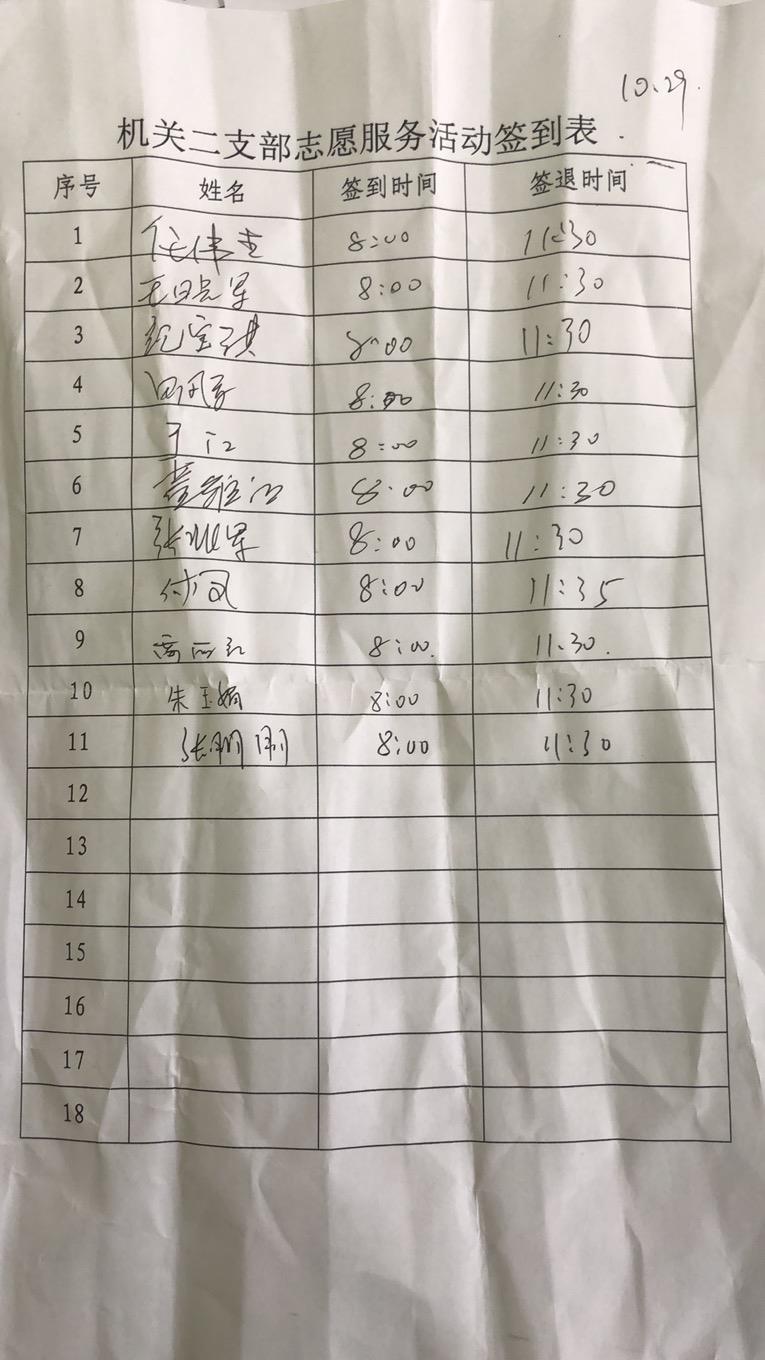 10.29.
机关二支部志愿服务活动签到表
序号 姓名 签到时间 签退时间
1 任伟杰 8:00 11:30
2 王晓军 8:00 11:30
3 纪宝琪 8:00 11:30
4 8:00 11:30
5 于江 8:00 11:30
6 8:00 11:30
7 8:00 11:30
8 付凤 8:00 11:35
9 高丽红 8:00. 11.30.
10 朱玉娟 8:00 11:30
11 张明刚 8:00 11:30
12
13
14
15
16
17
18